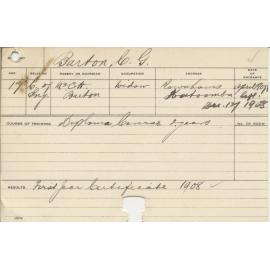 Barton, C. G.
AGE RELIGION PARENT OR GUARDIAN OCCUPATION ADDRESS DATE OF ENTRANCE
17 C. of Mrs C. H. Widow
Eng. Barton Katoomba Sept.
Dec. 17 1908
COURSE OF TRAINING Diploma Course 2 years No. OF ROOM
RESULTS First Year Certificate 1908